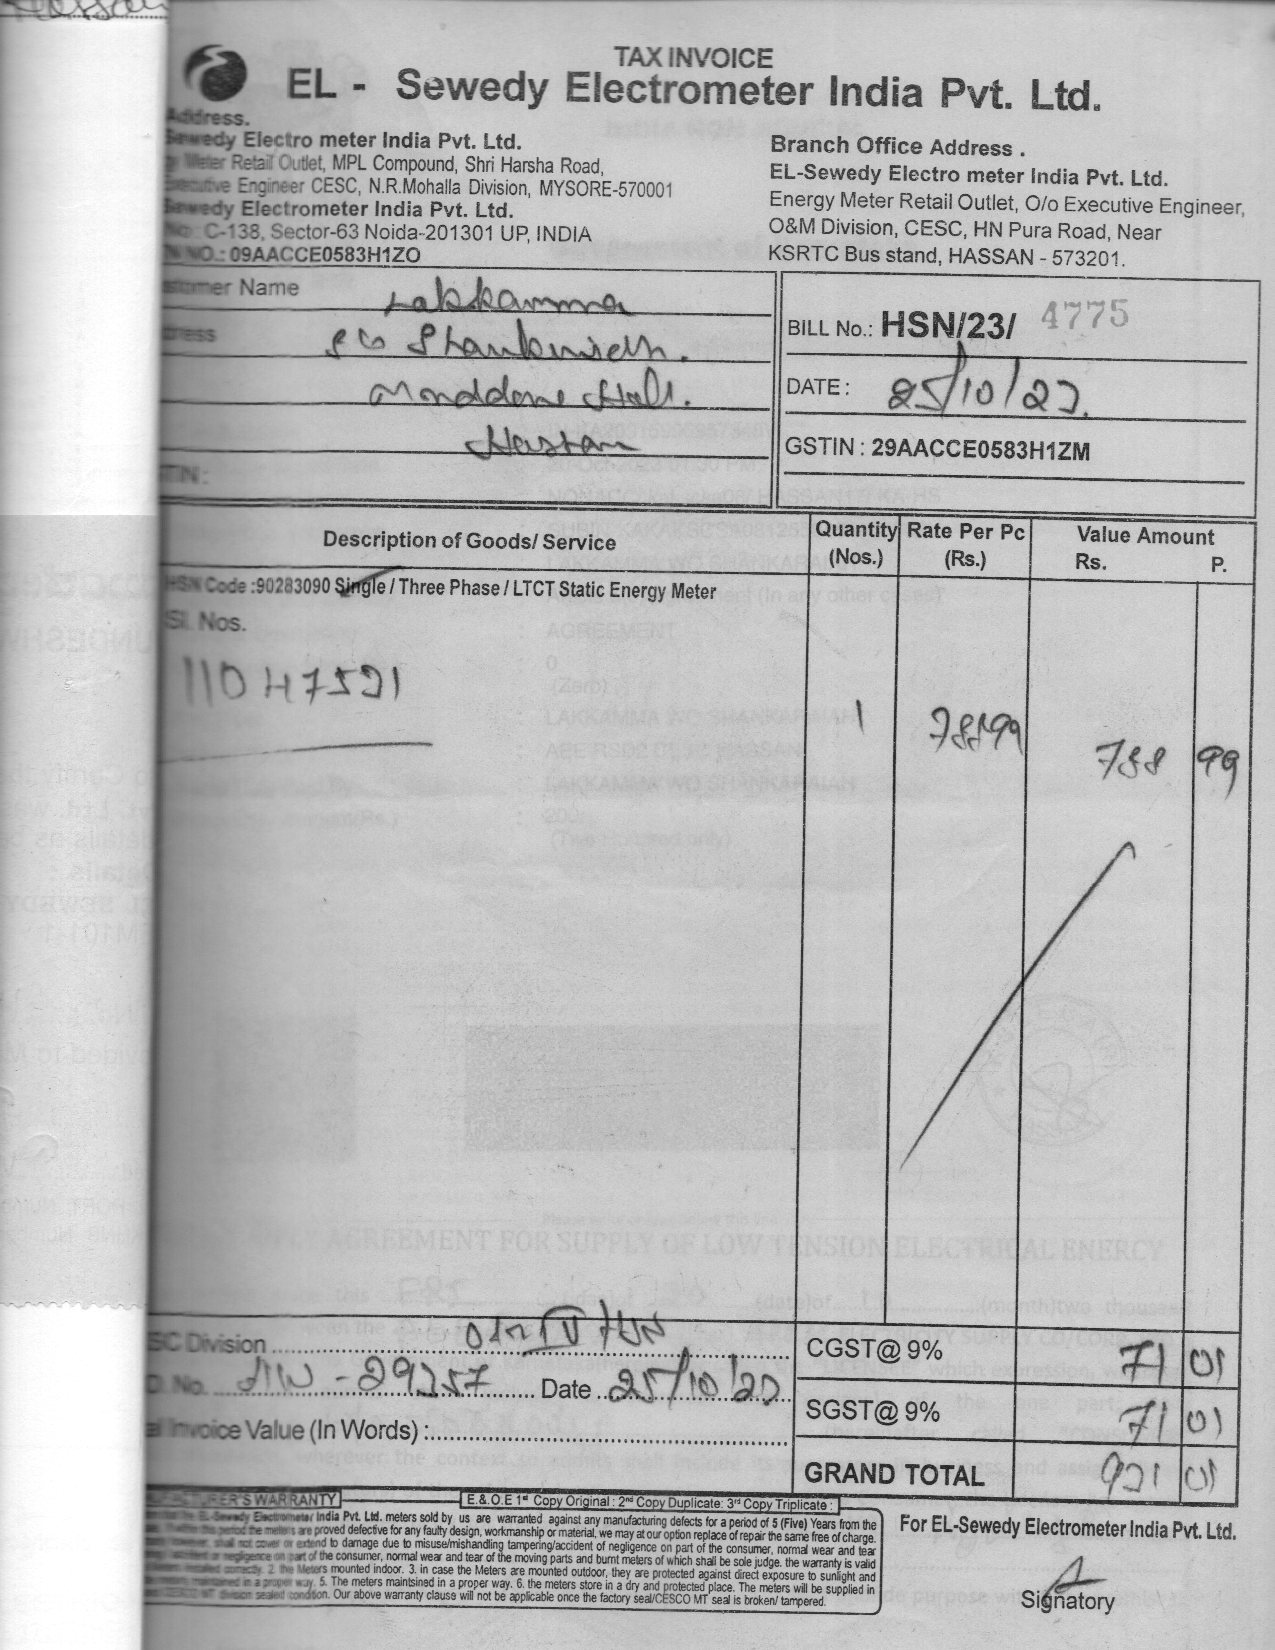 Hassan
TAX INVOICE
EL - Sewedy Electrometer India Pvt. Ltd.
Address.
Sewedy Electro meter India Pvt. Ltd.
Meter Retail Outlet, MPL Compound, Shri Harsha Road,
Executive Engineer CESC, N.R.Mohalla Division, MYSORE-570001
Sewedy Electrometer India Pvt. Ltd.
No. C-138, Sector-63 Noida-201301 UP, INDIA
NO.: 09AACCE0583H1ZO
Branch Office Address .
EL-Sewedy Electro meter India Pvt. Ltd.
Energy Meter Retail Outlet, O/o Executive Engineer,
O&M Division, CESC, HN Pura Road, Near
KSRTC Bus stand, HASSAN - 573201.
stomer Name Lakkamma
dress
Hassan
TIN :
BILL No.: HSN/23/ 4775
DATE : 25/10/23.
GSTIN : 29AACCE0583H1ZM
Description of Goods/ Service Quantity (Nos.) Rate Per Pc (Rs.) Value Amount Rs. P.
HSN Code :90283090 Single / Three Phase / LTCT Static Energy Meter
Sl. Nos.
11047521
1 788.99 788 99
SC Division
D. No. Date 25/10/23
al Invoice Value (In Words) :
CGST@ 9% 71 01
SGST@ 9% 71 01
GRAND TOTAL 931 01
MANUFACTURER'S WARRANTY E.& .O.E 1st Copy Original : 2nd Copy Duplicate: 3rd Copy Triplicate :
EL-Sewedy Electrometer India Pvt. Ltd. meters sold by us are warranted against any manufacturing defects for a period of 5 (Five) Years from the
the meters are proved defective for any faulty design, workmanship or material, we may at our option replace of repair the same free of charge.
shall not cover or extend to damage due to misuse/mishandling tampering/accident of negligence on part of the consumer, normal wear and tear
negligence on part of the consumer, normal wear and tear of the moving parts and burnt meters of which shall be sole judge. the warranty is valid
installed correctly. 2. the Meters mounted indoor. 3. in case the Meters are mounted outdoor, they are protected against direct exposure to sunlight and
in a proper way. 5. The meters maintsined in a proper way. 6. the meters store in a dry and protected place. The meters will be supplied in
MT division sealed condition. Our above warranty clause will not be applicable once the factory seal/CESCO MT seal is broken/ tampered.
For EL-Sewedy Electrometer India Pvt. Ltd.
Signatory